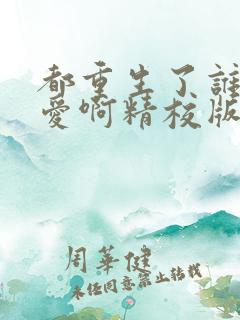 都重生了誰
愛啊精校版
周華健
未经同意禁止转载